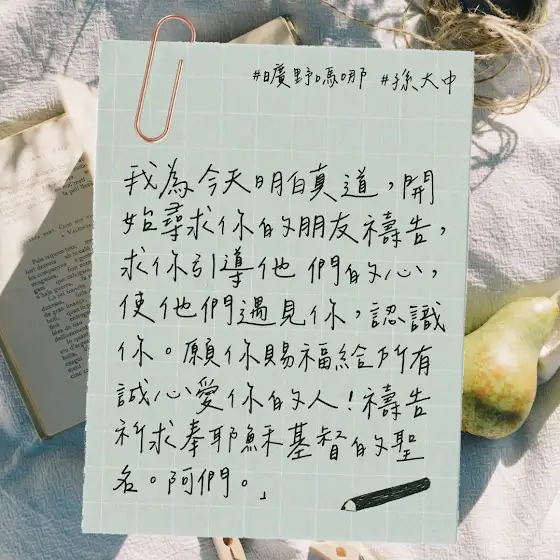 #曠野嗎哪 #孫大中
我為今天明白真道，開
始尋求你的朋友禱告，
求你引導他們的心，
使他們遇見你，認識
你。願你賜福給所有
誠心愛你的人！禱告
祈求奉耶穌基督的聖
名。阿們。」